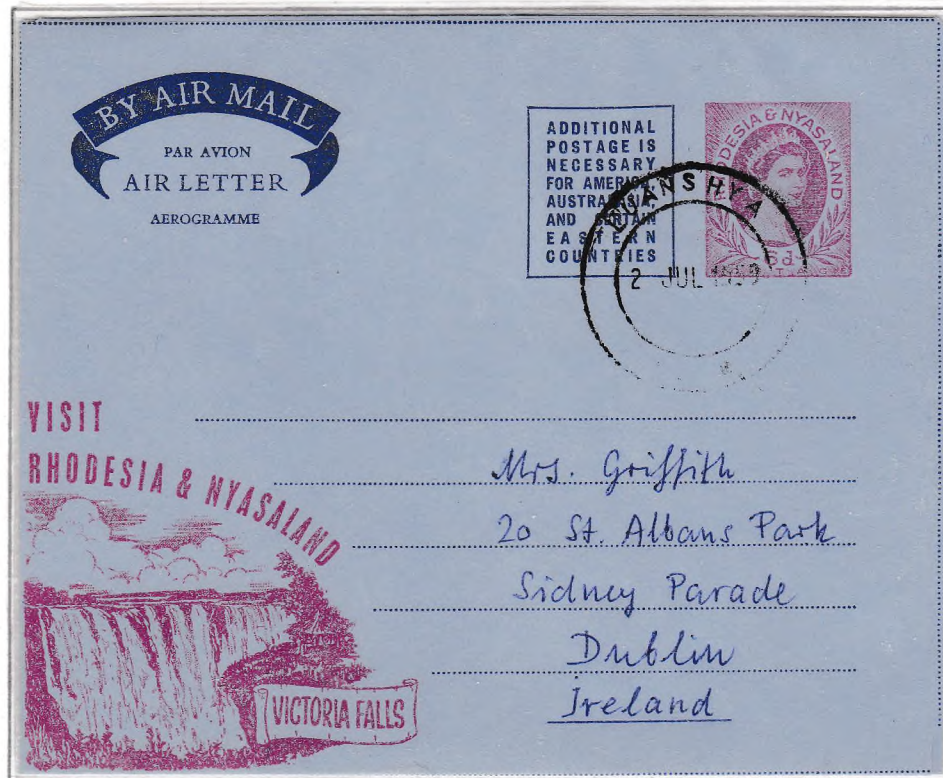 BY AIR MAIL
PAR AVION
AIR LETTER
AEROGRAMME
ADDITIONAL
POSTAGE IS
NECESSARY
FOR AMERICA,
AUSTRALASIA,
AND CERTAIN
EASTERN
COUNTRIES
RHODESIA & NYASALAND
6d
LUANSHYA
2 JUL 1959
VISIT
RHODESIA & NYASALAND
VICTORIA FALLS
Mrs. Griffith
20 St. Albans Park
Sidney Parade
Dublin
Ireland